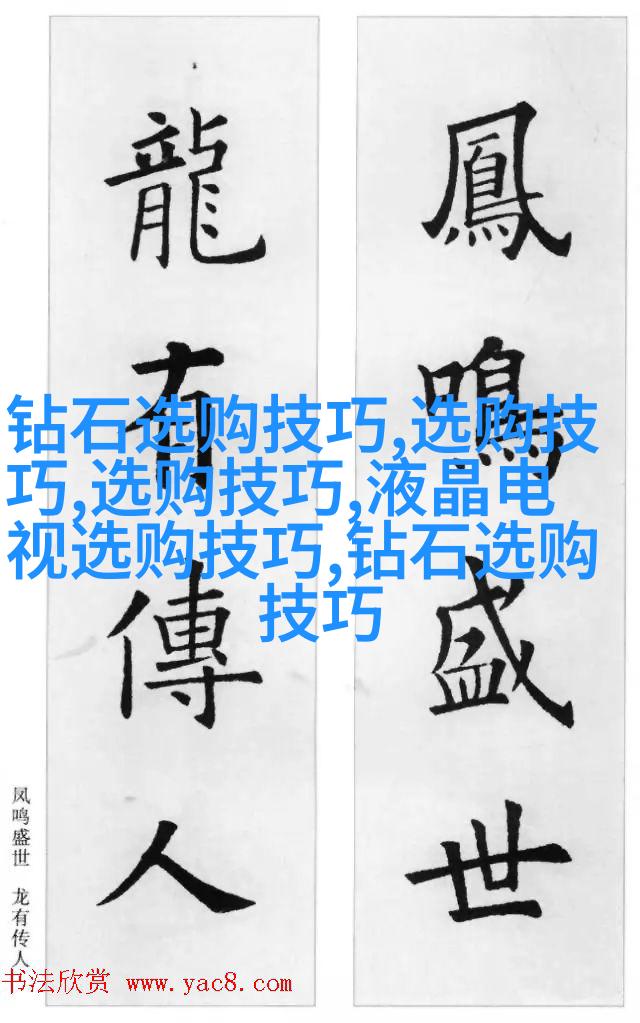 鳳鳴盛世
龍有傳人
钻石选购技巧,选购技
巧,选购技巧,液晶电
视选购技巧,钻石选购
技巧
凤鸣盛世 龙有传人
书法欣赏 www.yac8.com